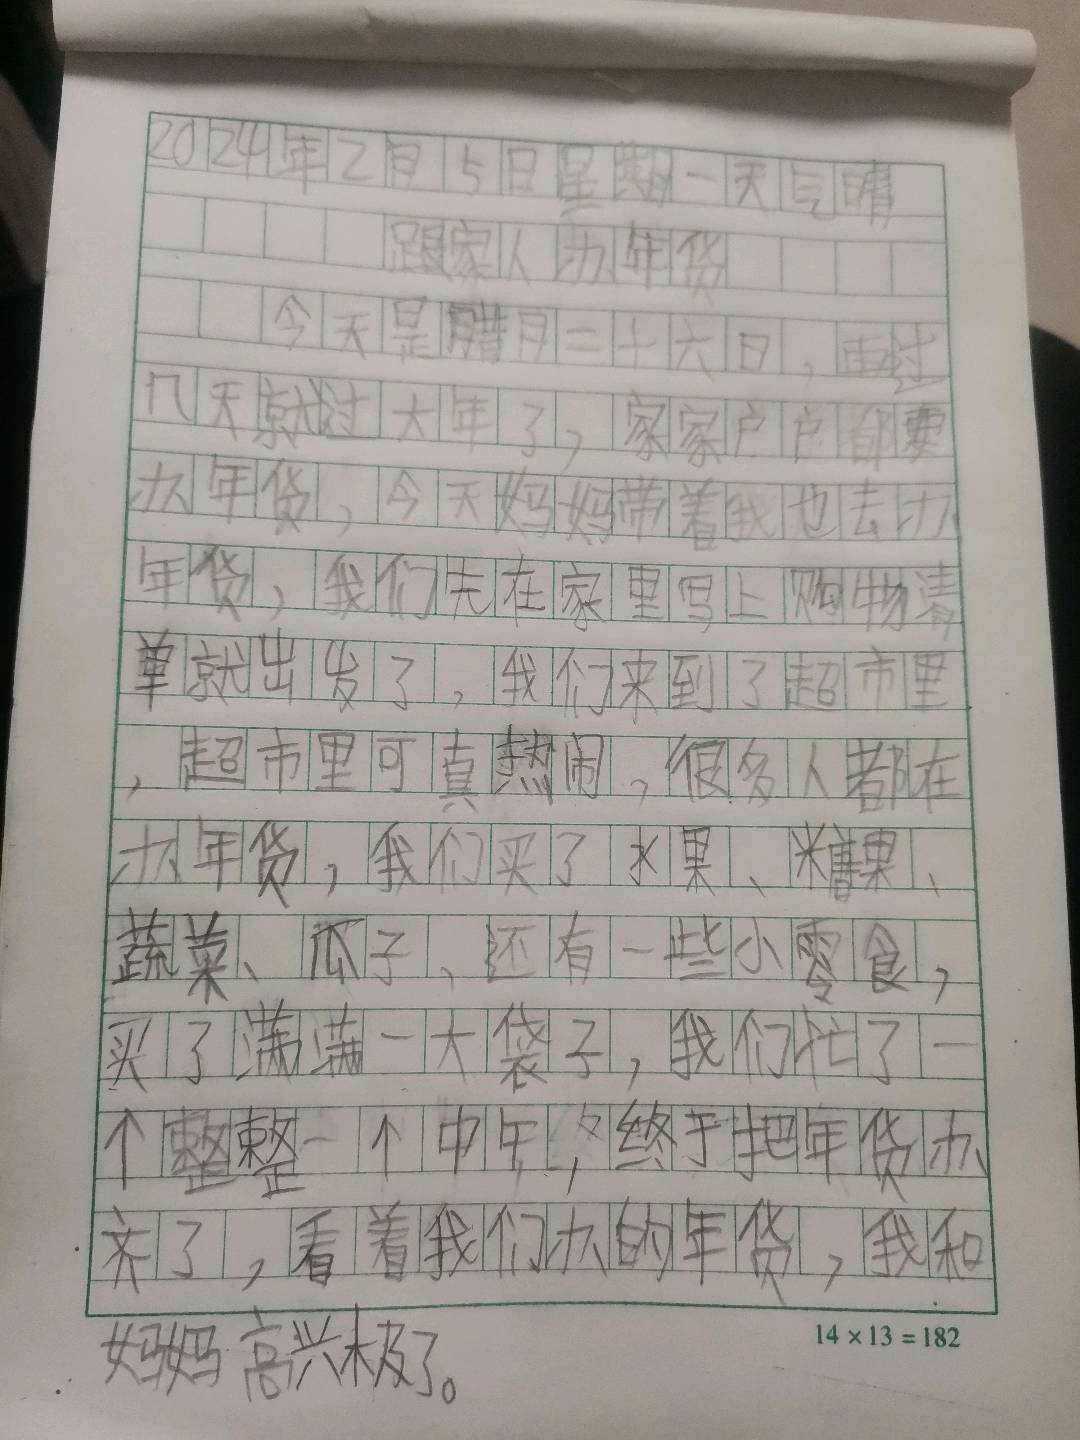 2024年2月5日星期一天气晴
跟家人办年货
今天是腊月二十六日，再过
几天就过大年了，家家户户都要
办年货，今天妈妈带着我也去办
年货，我们先在家里写上购物清
单就出发了，我们来到了超市里
，超市里可真热闹，很多人都在
办年货，我们买了水果、糖果、
蔬菜、瓜子，还有一些小零食，
买了满满一大袋子，我们忙了一
个整整一个中午，终于把年货办
齐了，看着我们办的年货，我和
妈妈高兴极了。
14×13=182